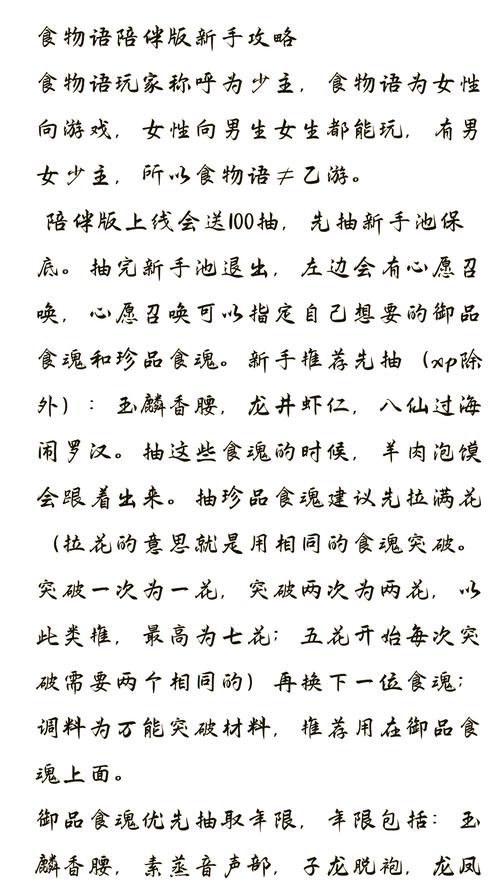 食物语陪伴版新手攻略
食物语玩家称呼为少主，食物语为女性
向游戏，女性向男生女生都能玩，有男
女少主，所以食物语≠乙游。
陪伴版上线会送100抽，先抽新手池保
底。抽完新手池退出，左边会有心愿召
唤，心愿召唤可以指定自己想要的御品
食魂和珍品食魂。新手推荐先抽（xp除
外）：玉麟香腰，龙井虾仁，八仙过海
闹罗汉。抽这些食魂的时候，羊肉泡馍
会跟着出来。抽珍品食魂建议先拉满花
（拉花的意思就是用相同的食魂突破。
突破一次为一花，突破两次为两花，以
此类推，最高为七花；五花开始每次突
破需要两个相同的）再换下一位食魂；
调料为万能突破材料，推荐用在御品食
魂上面。
御品食魂优先抽取年限，年限包括：玉
麟香腰，素蒸音声部，子龙脱袍，龙凤